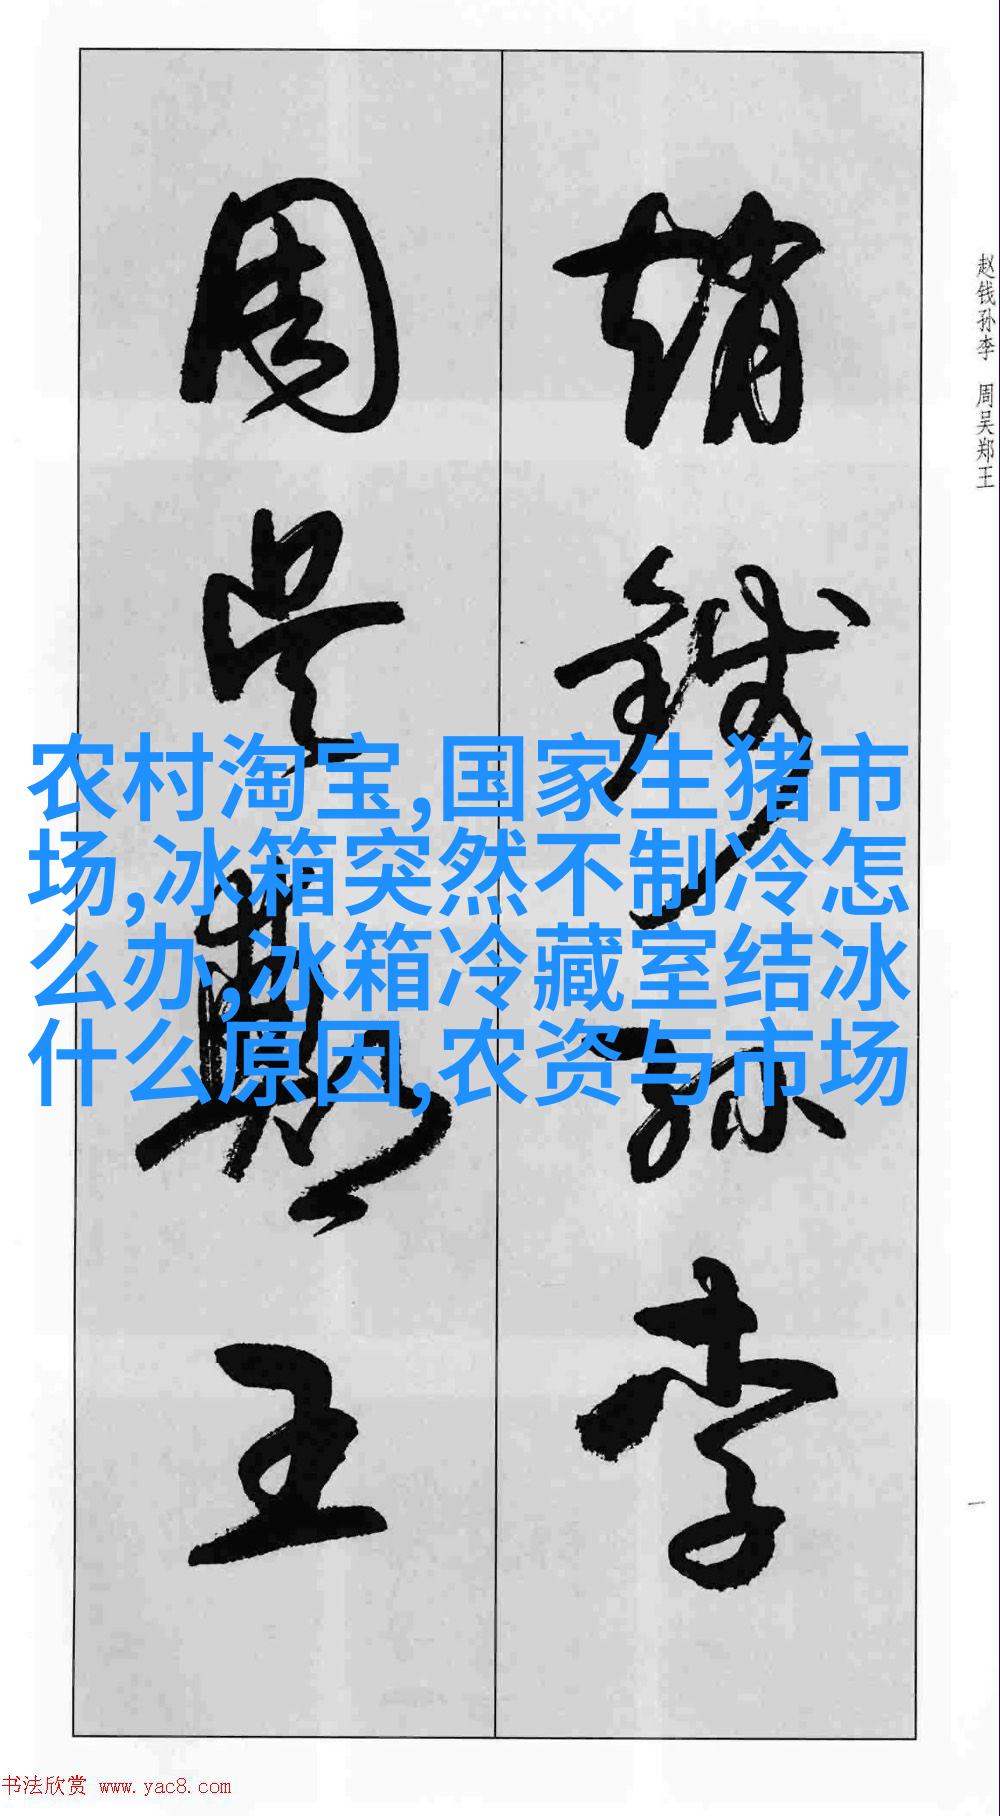 赵钱孙李 周吴郑王
趙錢孫李
周吳鄭王
农村淘宝,国家生猪市
场,冰箱突然不制冷怎
么办,冰箱冷藏室结冰
什么原因,农资与市场
一
书法欣赏 www.yac8.com